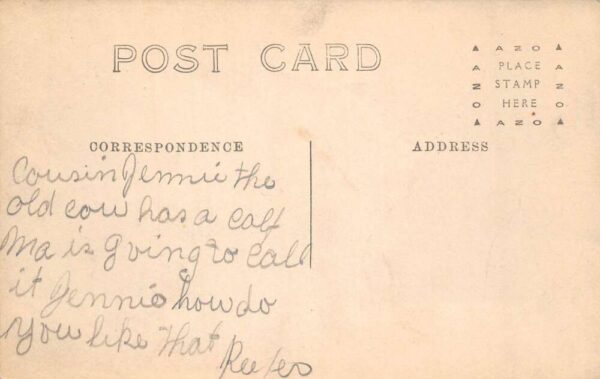 POST CARD
▲ AZO ▲
A PLACE A
Z STAMP Z
O HERE O
▲ AZO ▲
CORRESPONDENCE
ADDRESS
Cousin Jennie the
old cow has a calf
Ma is going to call
it Jennie how do
you like that